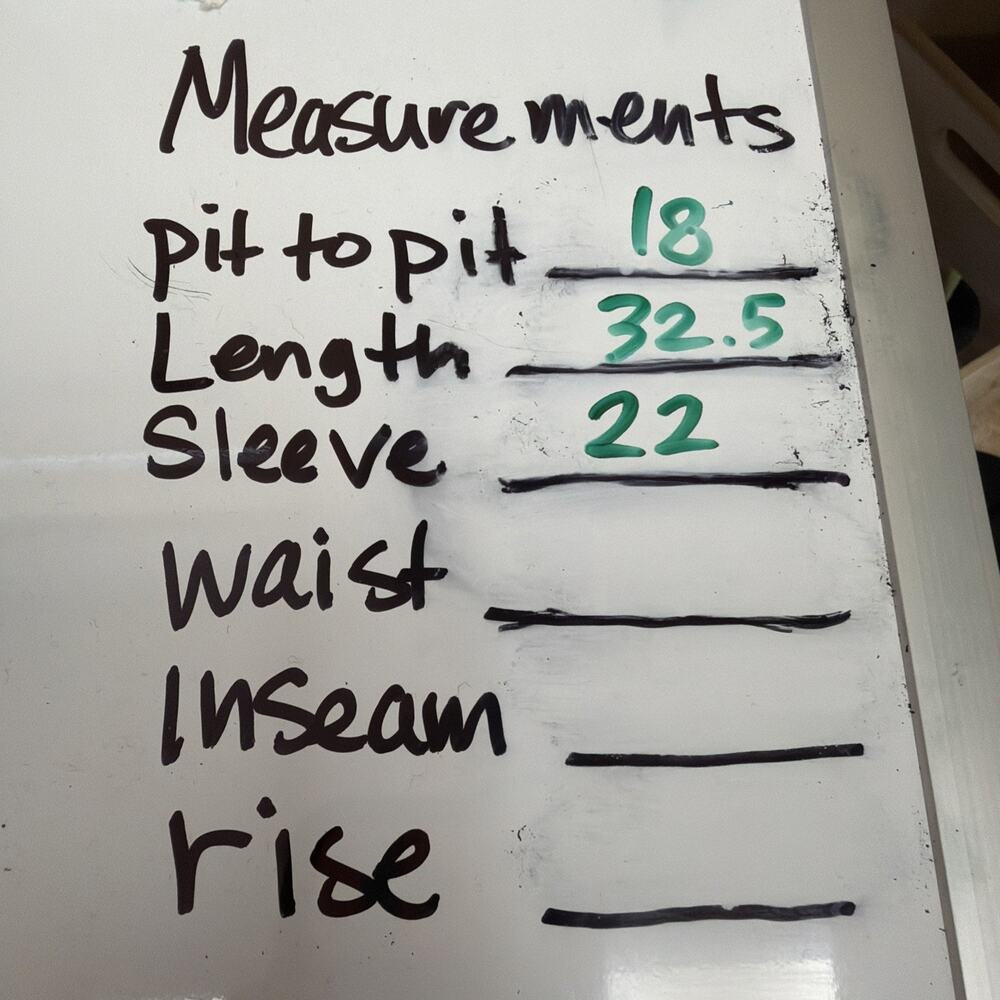 Measurements
pit to pit 18
Length 32.5
Sleeve 22
waist
Inseam
rise